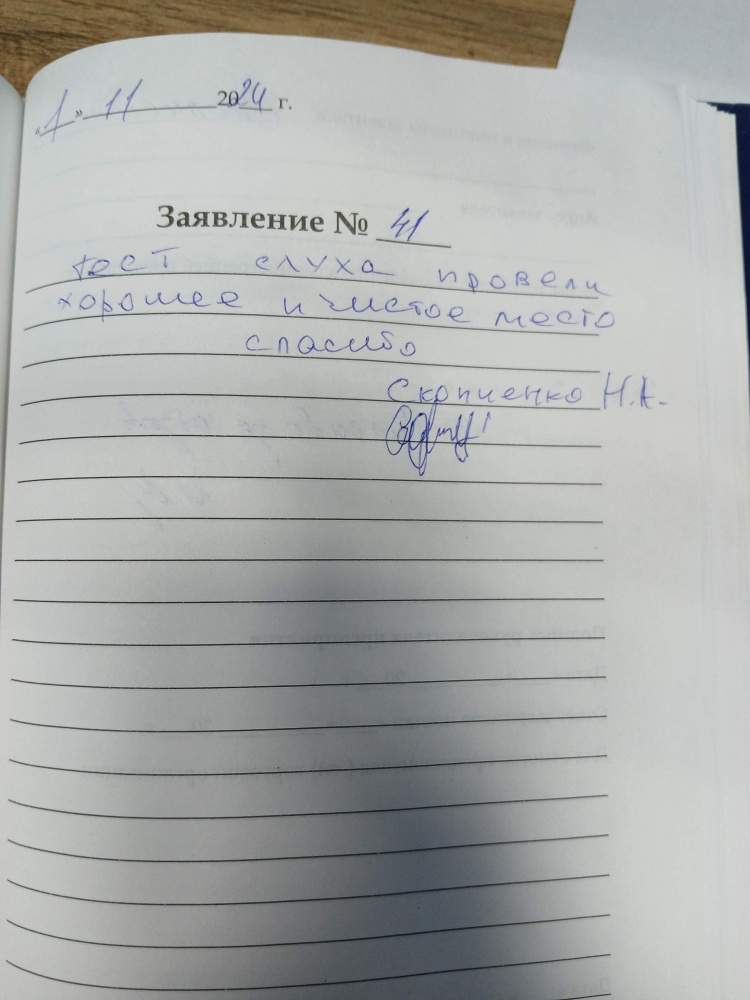 «1» 11 2024 г.
Заявление № 41
тест слуха провели
хорошее и чистое место
спасибо
Скрпиенко Н.А.